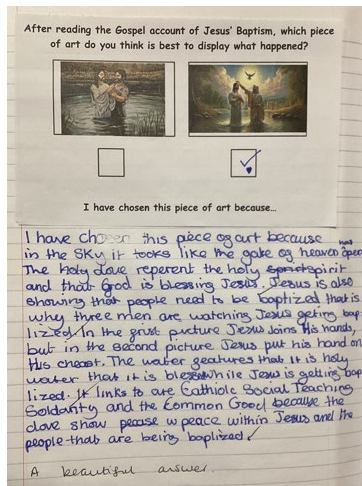 After reading the Gospel account of Jesus' Baptism, which piece
of art do you think is best to display what happened?
I have chosen this piece of art because...
I have chosen this piece of art because
in the Sky it looks like the gate of heaven has open
The Holy dove reperent the holy spirit
and that God is blessing Jesus. Jesus is also
showing that people need to be baptized that is
why three men are watching Jesus geting bap-
lized. In the first picture Jesus Joins His hands,
but in the second picture Jesus put his hand on
His cheast. The water geatures that it is holy
water that it is bless while Jesus is getting bap
lized. It links to are Catholic Social Teaching
Soldarity and the Common Good because the
dove show peace within Jesus and the
people that are being baplized
A beautiful answer.